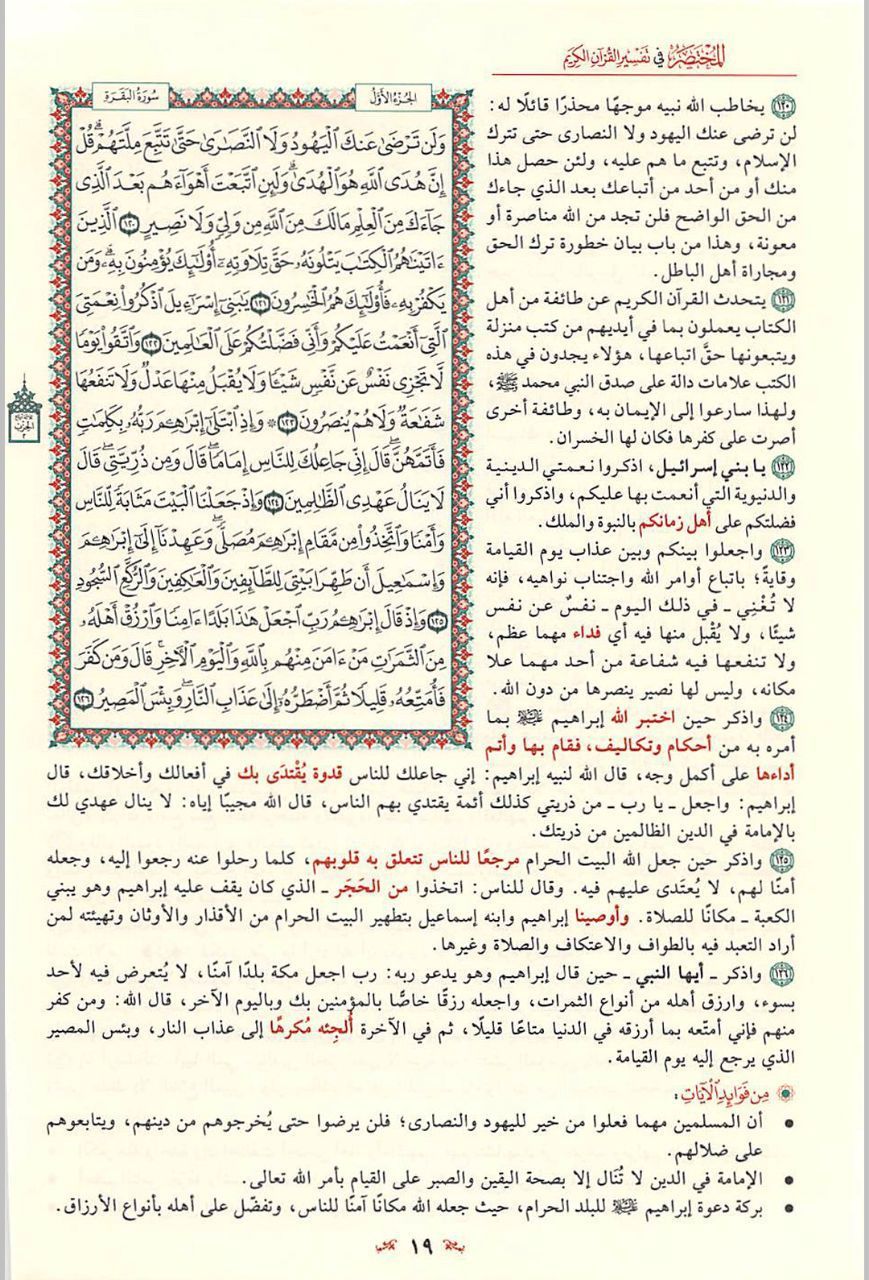 المختصر في تفسير القرآن الكريم
سورة البقرة
الجزء الأول
وَلَن تَرْضَىٰ عَنكَ ٱلْيَهُودُ وَلَا ٱلنَّصَٰرَىٰ حَتَّىٰ تَتَّبِعَ مِلَّتَهُمْ ۗ قُلْ
إِنَّ هُدَى ٱللَّهِ هُوَ ٱلْهُدَىٰ ۗ وَلَئِنِ ٱتَّبَعْتَ أَهْوَآءَهُم بَعْدَ ٱلَّذِى
جَآءَكَ مِنَ ٱلْعِلْمِ مَا لَكَ مِنَ ٱللَّهِ مِن وَلِىٍّ وَلَا نَصِيرٍ ١٢٠ ٱلَّذِينَ
ءَاتَيْنَٰهُمُ ٱلْكِتَٰبَ يَتْلُونَهُۥ حَقَّ تِلَاوَتِهِۦٓ أُو۟لَٰٓئِكَ يُؤْمِنُونَ بِهِۦ ۗ وَمَن
يَكْفُرْ بِهِۦ فَأُو۟لَٰٓئِكَ هُمُ ٱلْخَٰسِرُونَ ١٢١ يَٰبَنِىٓ إِسْرَٰٓءِيلَ ٱذْكُرُوا۟ نِعْمَتِىَ
ٱلَّتِىٓ أَنْعَمْتُ عَلَيْكُمْ وَأَنِّى فَضَّلْتُكُمْ عَلَى ٱلْعَٰلَمِينَ ١٢٢ وَٱتَّقُوا۟ يَوْمًا
لَّا تَجْزِى نَفْسٌ عَن نَّفْسٍ شَيْـًٔا وَلَا يُقْبَلُ مِنْهَا عَدْلٌ وَلَا تَنفَعُهَا
شَفَٰعَةٌ وَلَا هُمْ يُنصَرُونَ ١٢٣ ۞ وَإِذِ ٱبْتَلَىٰٓ إِبْرَٰهِۦمَ رَبُّهُۥ بِكَلِمَٰتٍ
فَأَتَمَّهُنَّ ۖ قَالَ إِنِّى جَاعِلُكَ لِلنَّاسِ إِمَامًا ۖ قَالَ وَمِن ذُرِّيَّتِى ۖ قَالَ
لَا يَنَالُ عَهْدِى ٱلظَّٰلِمِينَ ١٢٤ وَإِذْ جَعَلْنَا ٱلْبَيْتَ مَثَابَةً لِّلنَّاسِ
وَأَمْنًا وَٱتَّخِذُوا۟ مِن مَّقَامِ إِبْرَٰهِۦمَ مُصَلًّى ۖ وَعَهِدْنَآ إِلَىٰٓ إِبْرَٰهِۦمَ
وَإِسْمَٰعِيلَ أَن طَهِّرَا بَيْتِىَ لِلطَّآئِفِينَ وَٱلْعَٰكِفِينَ وَٱلرُّكَّعِ ٱلسُّجُودِ
١٢٥ وَإِذْ قَالَ إِبْرَٰهِۦمُ رَبِّ ٱجْعَلْ هَٰذَا بَلَدًا ءَامِنًا وَٱرْزُقْ أَهْلَهُۥ
مِنَ ٱلثَّمَرَٰتِ مَنْ ءَامَنَ مِنْهُم بِٱللَّهِ وَٱلْيَوْمِ ٱلْـَٔاخِرِ ۖ قَالَ وَمَن كَفَرَ
فَأُمَتِّعُهُۥ قَلِيلًا ثُمَّ أَضْطَرُّهُۥٓ إِلَىٰ عَذَابِ ٱلنَّارِ ۖ وَبِئْسَ ٱلْمَصِيرُ ١٢٦
١٢٠ يخاطب الله نبيه موجهًا محذرًا قائلًا له:
لن ترضى عنك اليهود ولا النصارى حتى تترك
الإسلام، وتتبع ما هم عليه، ولئن حصل هذا
منك أو من أحد من أتباعك بعد الذي جاءك
من الحق الواضح فلن تجد من الله مناصرة أو
معونة، وهذا من باب بيان خطورة ترك الحق
ومجاراة أهل الباطل.
١٢١ يتحدث القرآن الكريم عن طائفة من أهل
الكتاب يعملون بما في أيديهم من كتب منزلة
ويتبعونها حقَّ اتباعها، هؤلاء يجدون في هذه
الكتب علامات دالة على صدق النبي محمد ﷺ،
ولهذا سارعوا إلى الإيمان به، وطائفة أخرى
أصرت على كفرها فكان لها الخسران.
١٢٢ يا بني إسرائيل، اذكروا نعمتي الدينية
والدنيوية التي أنعمت بها عليكم، واذكروا أني
فضلتكم على أهل زمانكم بالنبوة والملك.
١٢٣ واجعلوا بينكم وبين عذاب يوم القيامة
وقاية؛ باتباع أوامر الله واجتناب نواهيه، فإنه
لا تُغْنِي ـ في ذلك اليوم ـ نفسٌ عن نفس
شيئًا، ولا يُقْبل منها فيه أي فداء مهما عظم،
ولا تنفعها فيه شفاعة من أحد مهما علا
مكانه، وليس لها نصير ينصرها من دون الله.
١٢٤ واذكر حين اختبر الله إبراهيم ﷺ بما
أمره به من أحكام وتكاليف، فقام بها وأتم
أداءها على أكمل وجه، قال الله لنبيه إبراهيم: إني جاعلك للناس قدوة يُقْتدَى بك في أفعالك وأخلاقك، قال
إبراهيم: واجعل ـ يا رب ـ من ذريتي كذلك أئمة يقتدي بهم الناس، قال الله مجيبًا إياه: لا ينال عهدي لك
بالإمامة في الدين الظالمين من ذريتك.
١٢٥ واذكر حين جعل الله البيت الحرام مرجعًا للناس تتعلق به قلوبهم، كلما رحلوا عنه رجعوا إليه، وجعله
أمنًا لهم، لا يُعتَدى عليهم فيه. وقال للناس: اتخذوا من الحَجَر ـ الذي كان يقف عليه إبراهيم وهو يبني
الكعبة ـ مكانًا للصلاة. وأوصينا إبراهيم وابنه إسماعيل بتطهير البيت الحرام من الأقذار والأوثان وتهيئته لمن
أراد التعبد فيه بالطواف والاعتكاف والصلاة وغيرها.
١٢٦ واذكر ـ أيها النبي ـ حين قال إبراهيم وهو يدعو ربه: رب اجعل مكة بلدًا آمنًا، لا يُتعرض فيه لأحد
بسوء، وارزق أهله من أنواع الثمرات، واجعله رزقًا خاصًّا بالمؤمنين بك وباليوم الآخر، قال الله: ومن كفر
منهم فإني أمتّعه بما أرزقه في الدنيا متاعًا قليلًا، ثم في الآخرة أُلجِئه مُكرهًا إلى عذاب النار، وبئس المصير
الذي يرجع إليه يوم القيامة.
من فوائد الآيات:
• أن المسلمين مهما فعلوا من خير لليهود والنصارى؛ فلن يرضوا حتى يُخرجوهم من دينهم، ويتابعوهم
على ضلالهم.
• الإمامة في الدين لا تُنَال إلا بصحة اليقين والصبر على القيام بأمر الله تعالى.
• بركة دعوة إبراهيم ﷺ للبلد الحرام، حيث جعله الله مكانًا آمنًا للناس، وتفضّل على أهله بأنواع الأرزاق.
١٩